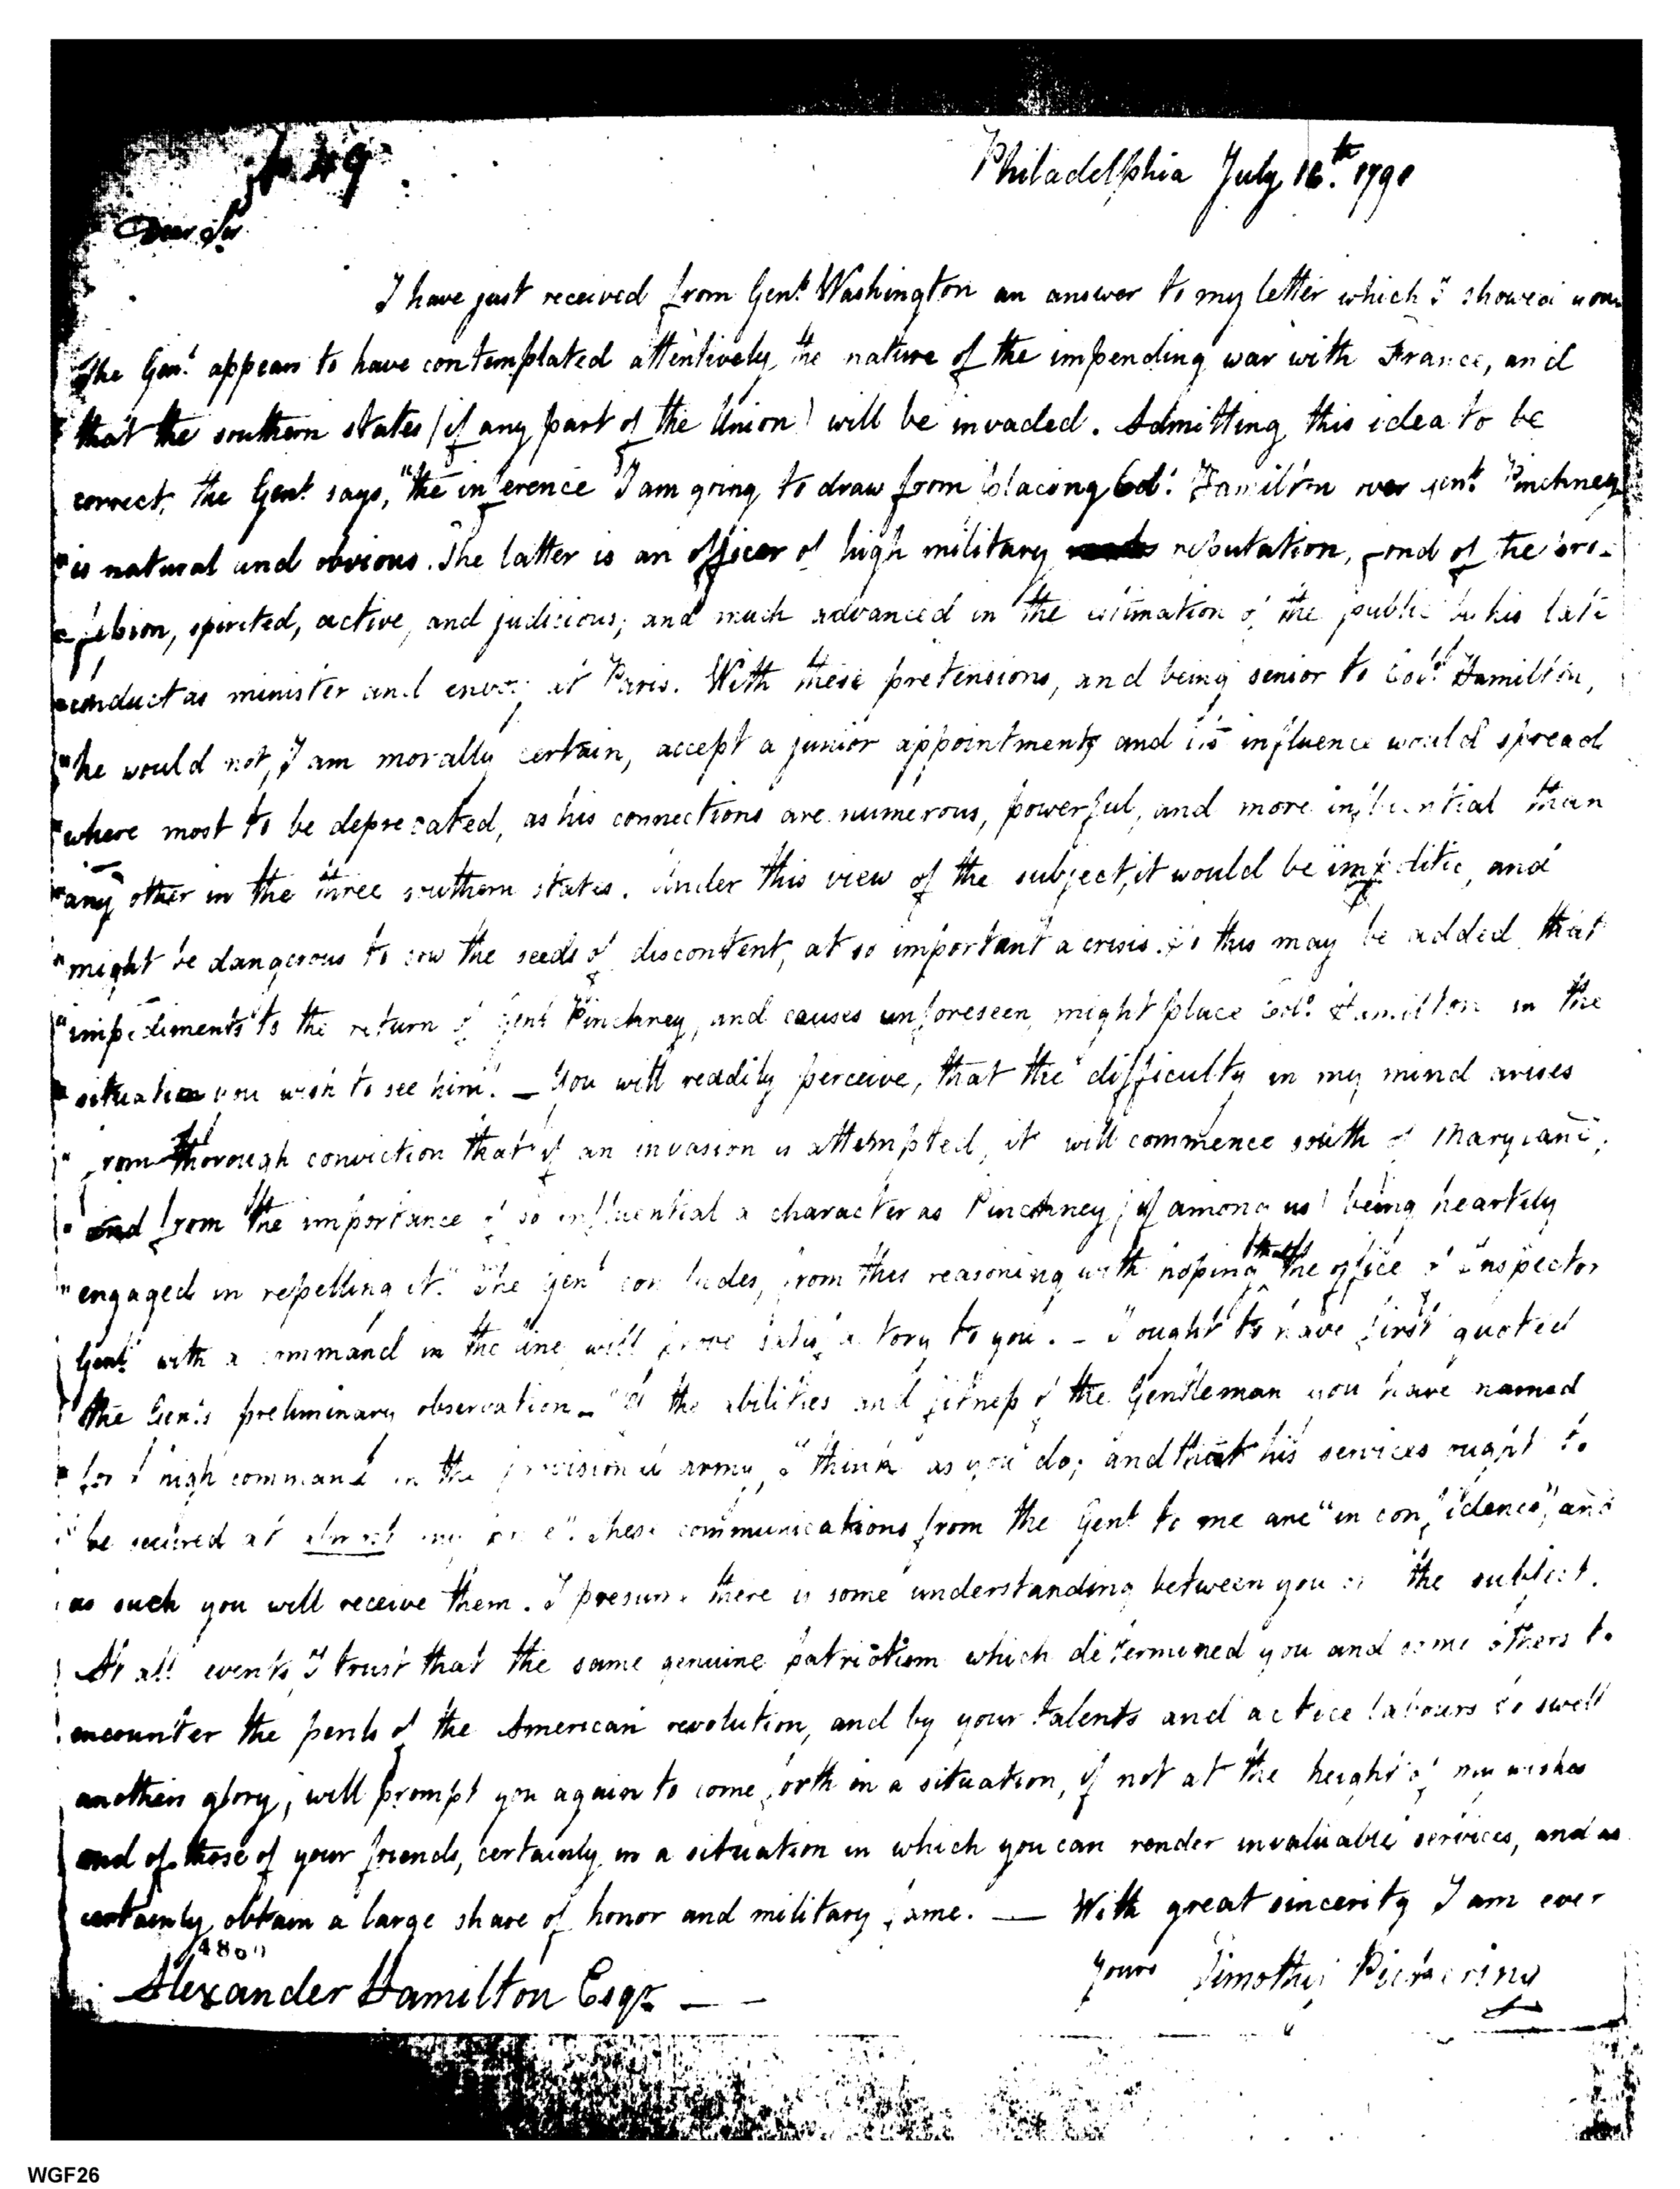 49
Philadelphia July 16th. 1798
Dear Sir
I have just received from Genl. Washington an answer to my letter which I showed you
The Genl. appears to have contemplated attentively the nature of the impending war with France, and
that the southern states (if any part of the Union) will be invaded. Admitting this idea to be
correct, the Genl. says, "the inference I am going to draw from placing Col. Hamilton over Genl. Pinckney
"is natural and obvious. The latter is an officer of high military reputation, fond of the pro-
"fession, spirited, active, and judicious; and much advanced in the estimation of the public by his late
"conduct as minister and envoy at Paris. With these pretensions, and being senior to Col. Hamilton,
"he would not, I am morally certain, accept a junior appointment; and its influence would spread
"where most to be deprecated, as his connections are numerous, powerful, and more influential than
"any other in the three southern states. Under this view of the subject, it would be impolitic, and
"might be dangerous to sow the seeds of discontent, at so important a crisis. To this may be added that
"impediments to the return of Genl. Pinckney, and causes unforeseen, might place Col. Hamilton in the
"situation you wish to see him". — You will readily perceive, that the difficulty in my mind arises
"from thorough conviction that if an invasion is attempted, it will commence south of Maryland;
"and from the importance of so influential a character as Pinckney (if among us) being heartily
"engaged in repelling it." The Genl. concludes, from this reasoning with hoping that the office of Inspector
Genl. with a command in the line will prove satisfactory to you. — I ought to have first quoted
the Genl's preliminary observation — "Of the abilities and fitness of the Gentleman you have named
"for a high command in the provisional army, I think as you do; and that his services ought to
"be secured at almost any price". These communications from the Genl. to me are "in confidence", and
as such you will receive them. I presume there is some understanding between you on the subject.
At all events, I trust that the same genuine patriotism which determined you and some others to
encounter the perils of the American revolution, and by your talents and active labours to swell
anothers glory, will prompt you again to come forth in a situation, if not at the height of my wishes
and of those of your friends, certainly in a situation in which you can render invaluable services, and as
certainly obtain a large share of honor and military fame. — With great sincerity I am ever
yours Timothy Pickering
Alexander Hamilton Esqr. — —
WGF26